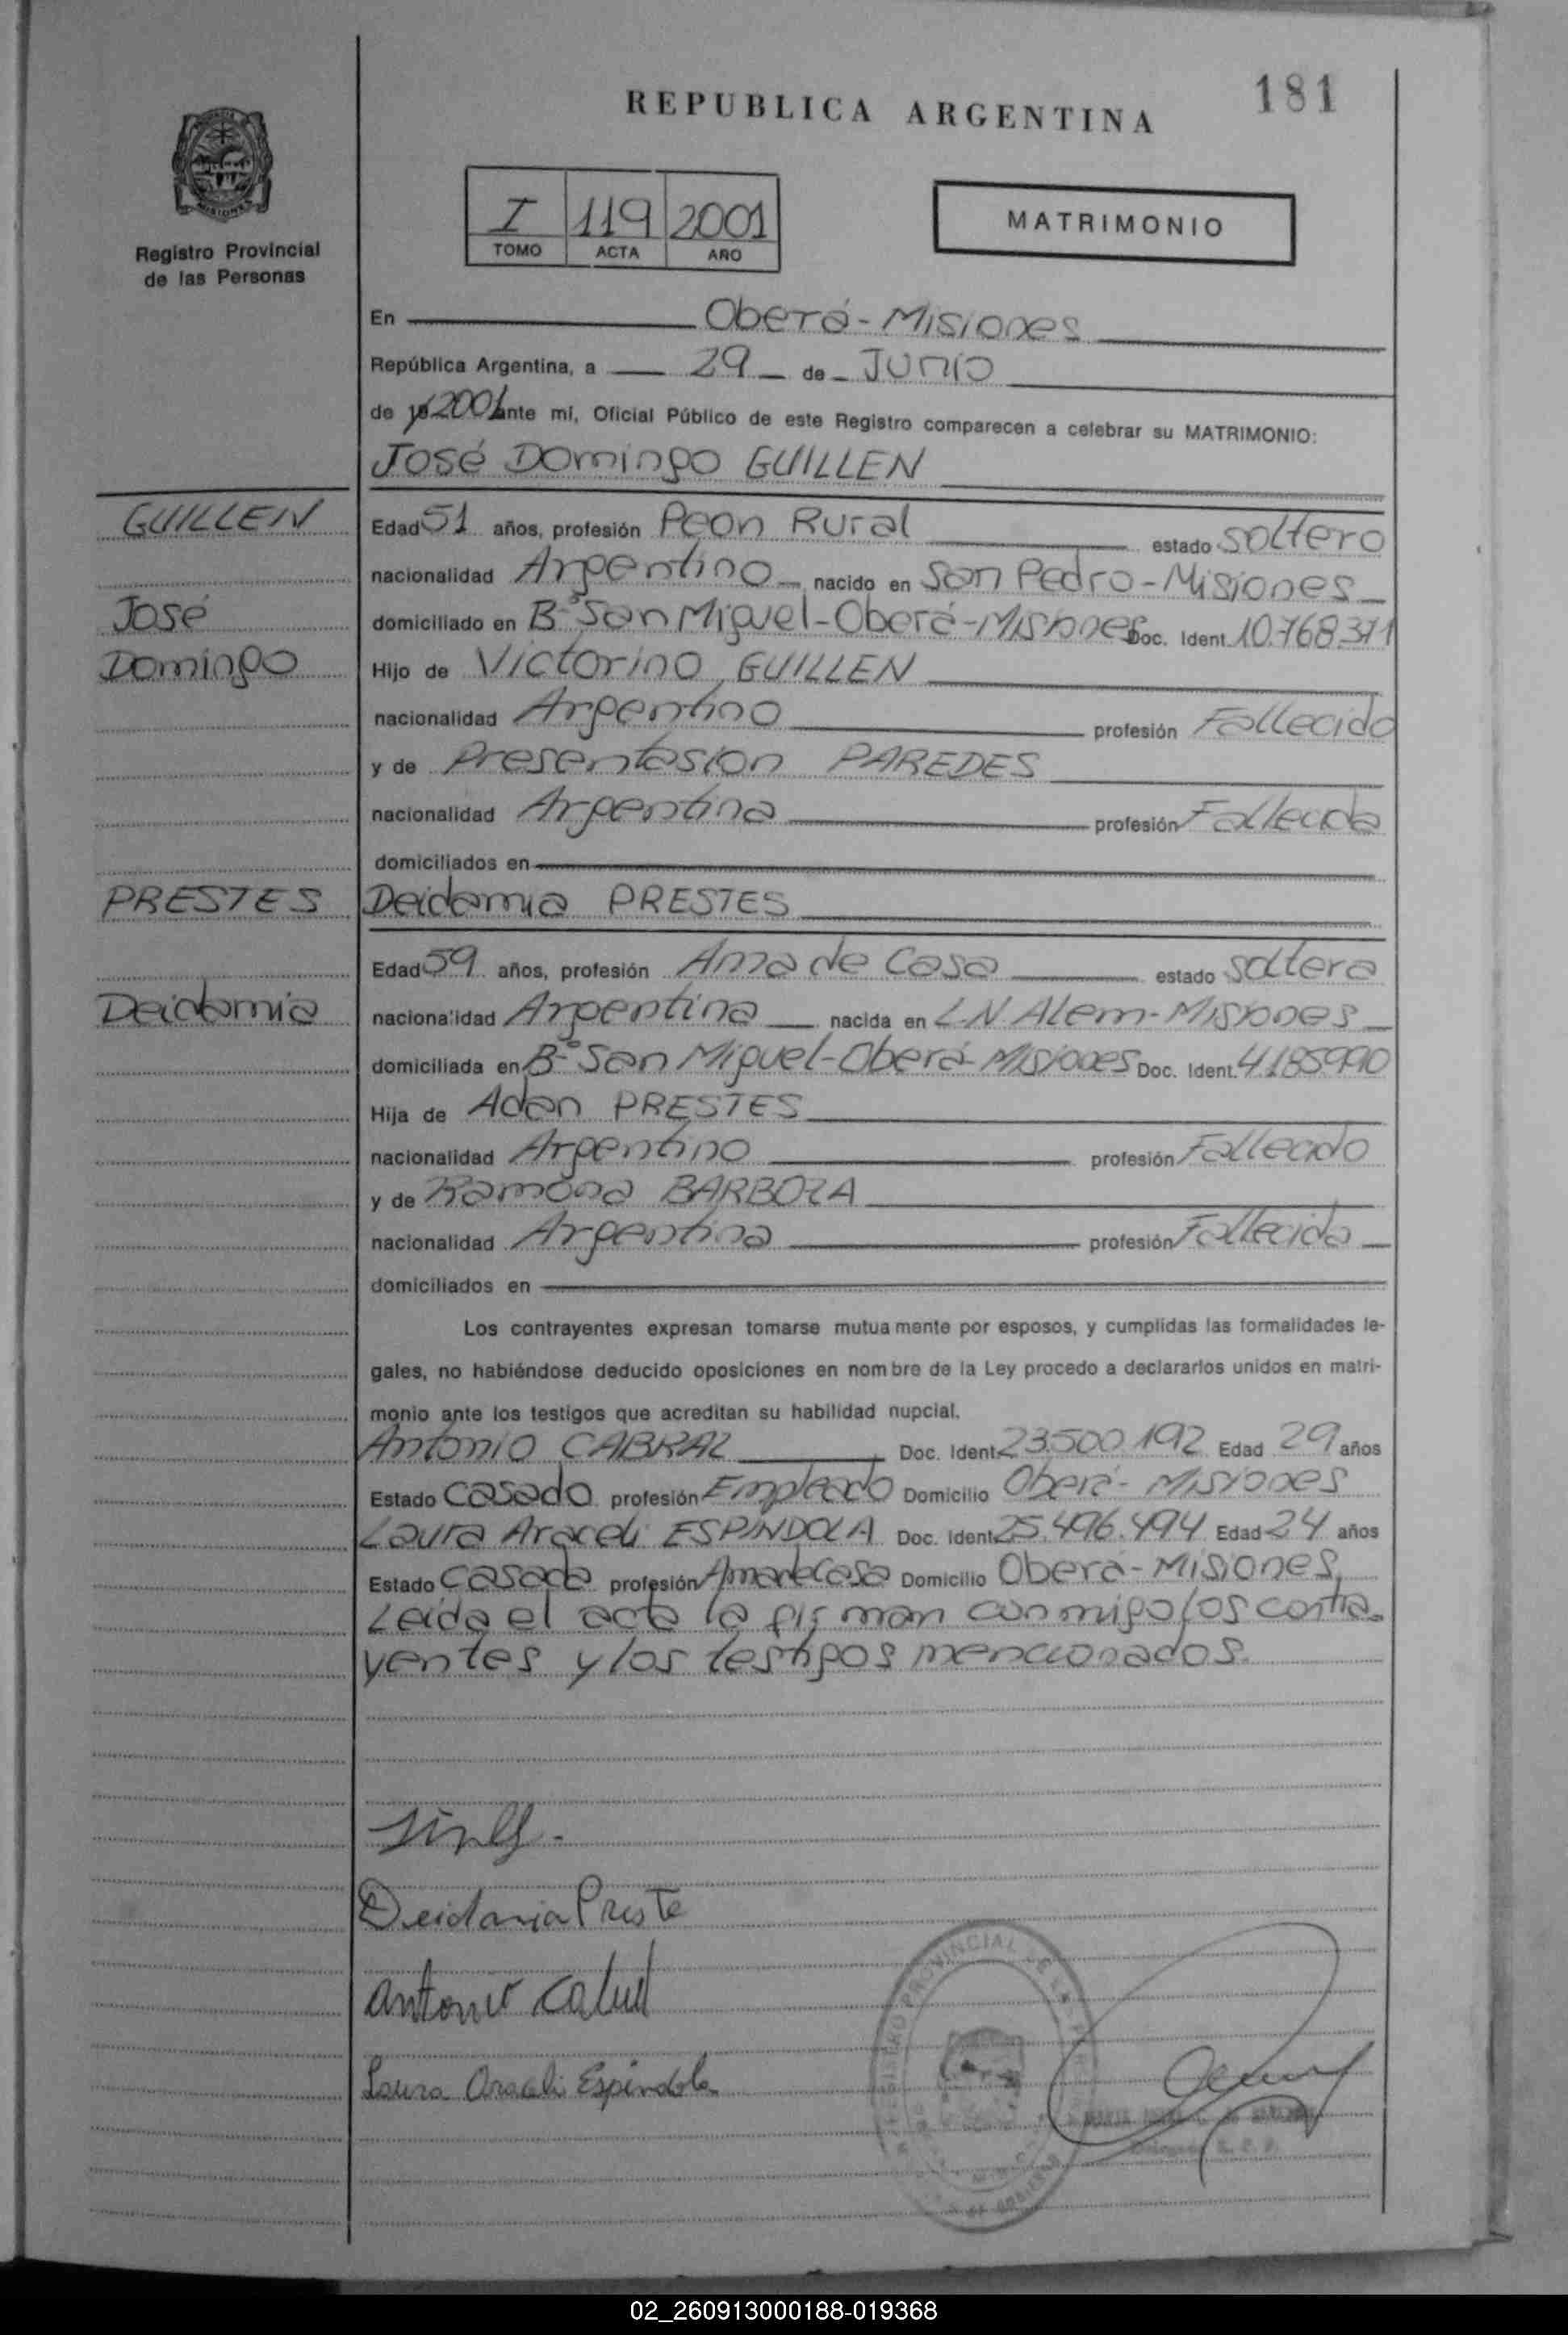 181
REPUBLICA ARGENTINA
MISIONES
Registro Provincial
de las Personas
I 119 2001
TOMO ACTA AÑO
MATRIMONIO
En Oberá - Misiones
República Argentina, a 29 de Junio
de 19 2001 ante mí, Oficial Público de este Registro comparecen a celebrar su MATRIMONIO:
José Domingo GUILLEN
GUILLEN
Edad 51 años, profesión Peon Rural estado Soltero
nacionalidad Argentino nacido en San Pedro - Misiones
José
domiciliado en Bº San Miguel - Oberá - Misiones Doc. Ident. 10.768.371
Domingo
Hijo de Victorino GUILLEN
nacionalidad Argentino profesión Fallecido
y de Presentasion PAREDES
nacionalidad Argentina profesión Fallecida
domiciliados en
PRESTES
Deidamia PRESTES
Edad 59 años, profesión Ama de Casa estado Soltera
Deidamia
nacionalidad Argentina nacida en L.N. Alem - Misiones
domiciliada en Bº San Miguel - Oberá - Misiones Doc. Ident. 4.185.990
Hija de Adan PRESTES
nacionalidad Argentino profesión Fallecido
y de Ramona BARBOZA
nacionalidad Argentina profesión Fallecida
domiciliados en
Los contrayentes expresan tomarse mutuamente por esposos, y cumplidas las formalidades le-
gales, no habiéndose deducido oposiciones en nombre de la Ley procedo a declararlos unidos en matri-
monio ante los testigos que acreditan su habilidad nupcial.
Antonio CABRAL Doc. Ident. 23.500.192 Edad 29 años
Estado Casado profesión Empleado Domicilio Oberá - Misiones
Laura Araceli ESPINDOLA Doc. Ident. 25.496.494 Edad 24 años
Estado Casada profesión Ama de Casa Domicilio Oberá - Misiones.
Leida el acta la firman conmigo los contra-
yentes y los testigos mencionados.
Deidamia Preste
Antonio Cabral
Laura Araceli Espindola
PROVINCIAL
02_260913000188-019368